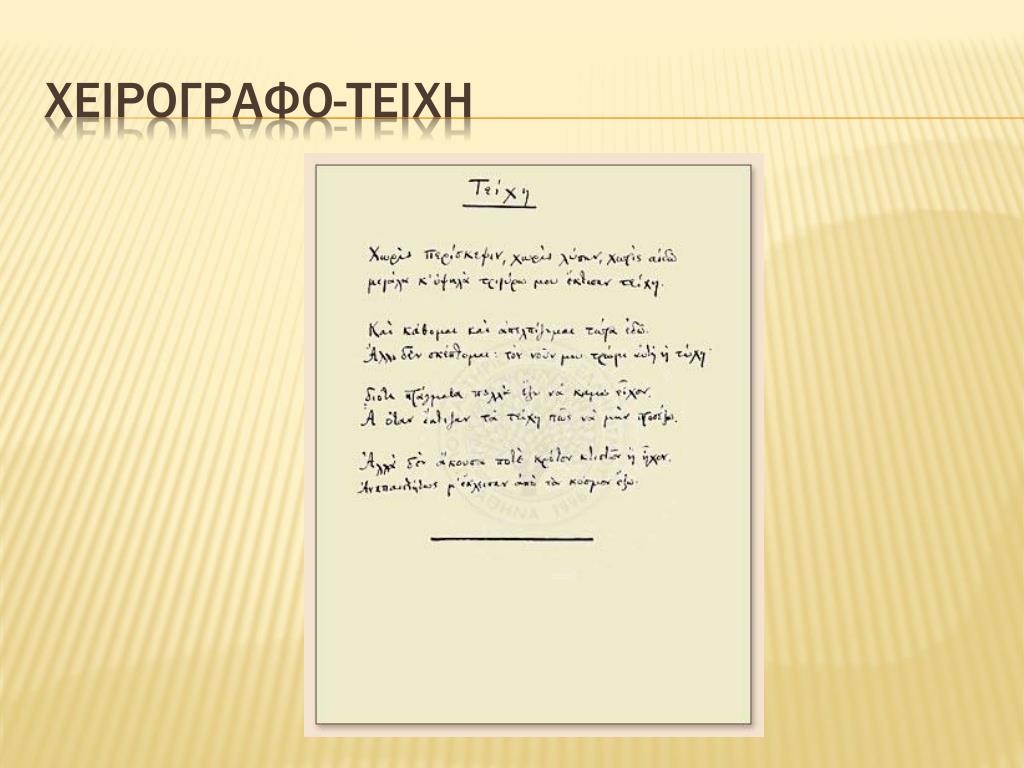 ΧΕΙΡΟΓΡΑΦΟ-ΤΕΙΧΗ
Τείχη
Χωρὶς περίσκεψιν, χωρὶς λύπην, χωρὶς αἰδώ
μεγάλα κ' ὑψηλὰ τριγύρω μου ἔκτισαν τείχη.
Καὶ κάθομαι καὶ ἀπελπίζομαι τώρα ἐδῶ.
Ἄλλο δὲν σκέπτομαι: τὸν νοῦν μου τρώγει αὐτὴ ἡ τύχη·
διότι πράγματα πολλὰ ἔξω νὰ κάμω εἶχον.
Ἆ ὅταν ἔκτιζαν τὰ τείχη πῶς νὰ μὴν προσέξω.
Ἀλλὰ δὲν ἄκουσα ποτὲ κρότον κτιστῶν ἢ ἦχον.
Ἀνεπαισθήτως μ' ἔκλεισαν ἀπὸ τὸν κόσμον ἔξω.
ΑΘΗΝΑ